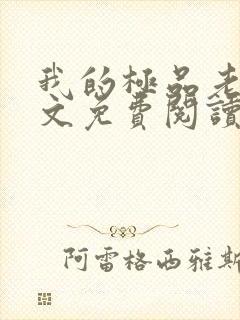 我的極品老
文免費閱讀
阿雷格西雅斯